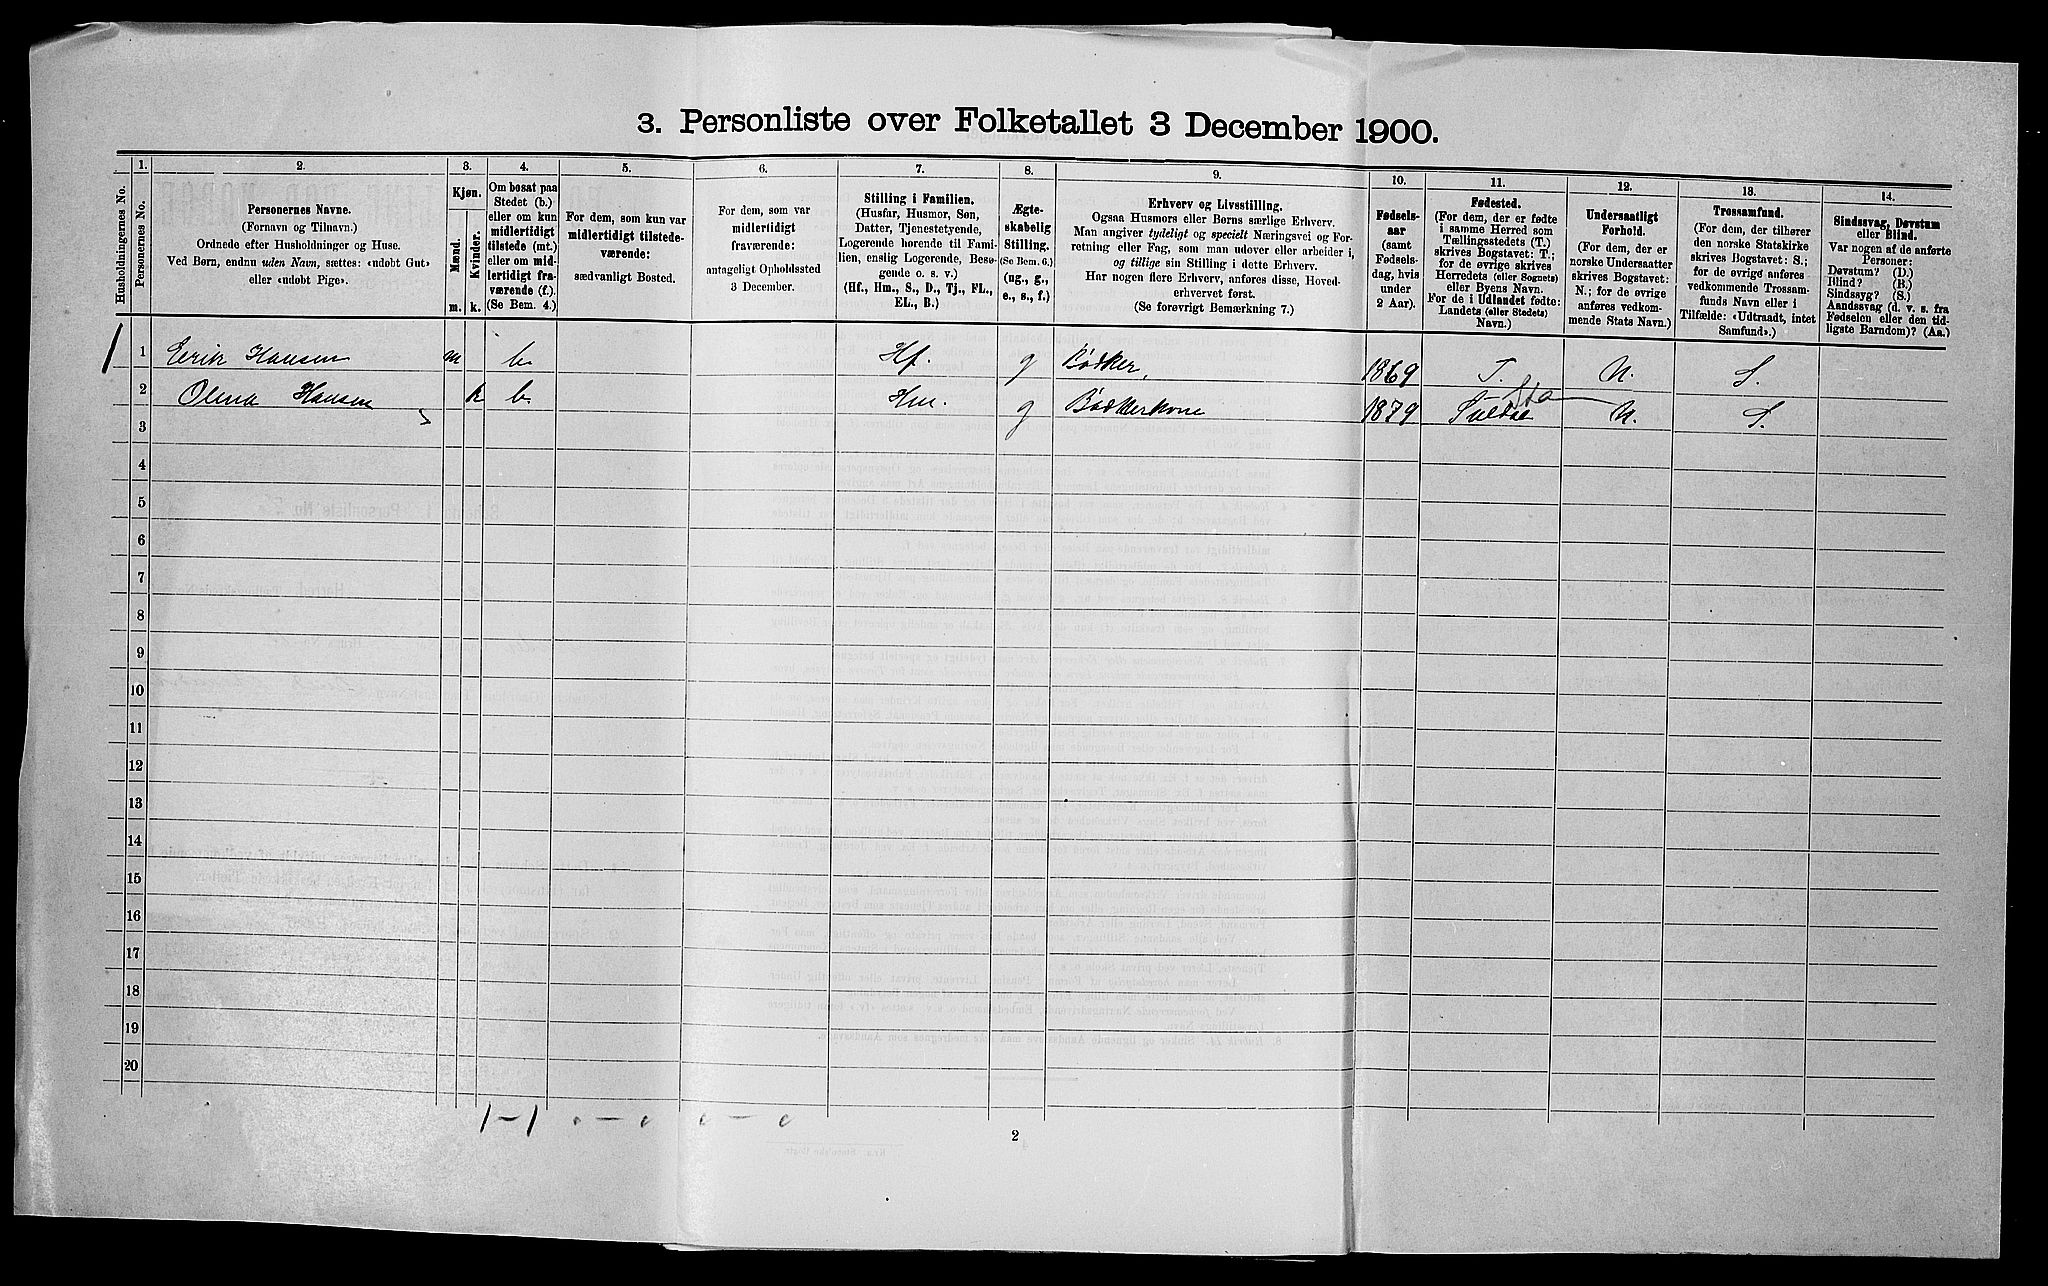 3. Personliste over Folketallet 3 December 1900.
Husholdningernes No.
1.
Personernes No.
2.
Personernes Navne.
(Fornavn og Tilnavn.)
Ordnede efter Husholdninger og Huse.
Ved Børn, endnu uden Navn, sættes: «udøbt Gut»
eller «udøbt Pige».
3.
Kjøn.
Mænd.
Kvinder.
m.
k.
4.
Om bosat paa
Stedet (b.)
eller om kun
midlertidigt
tilstede (mt.)
eller om mid-
lertidigt fra-
værende (f.).
(Se Bem. 4.)
5.
For dem, som kun var
midlertidigt tilstede-
værende:
sædvanligt Bosted.
6.
For dem, som var
midlertidigt
fraværende:
antageligt Opholdssted
3 December.
7.
Stilling i Familien.
(Husfar, Husmor, Søn,
Datter, Tjenestetyende,
Logerende hørende til Fami-
lien, enslig Logerende, Besø-
gende o. s. v.)
(Hf., Hm., S., D., Tj., FL.,
EL., B.)
8.
Ægte-
skabelig
Stilling.
(Se Bem. 6.)
(ug., g.,
e., s., f.)
9.
Erhverv og Livsstilling.
Ogsaa Husmors eller Børns særlige Erhverv.
Man angiver tydeligt og specielt Næringsvei og For-
retning eller Fag, som man udøver eller arbeider i,
og tillige sin Stilling i dette Erhverv.
Har nogen flere Erhverv, anføres disse, Hoved-
erhvervet først.
(Se forøvrigt Bemærkning 7.)
10.
Fødsels-
aar
(samt
Fødsels-
dag, hvis
under
2 Aar).
11.
Fødested.
(For dem, der er fødte
i samme Herred som
Tællingsstedets (T.)
skrives Bogstavet: T.;
for de øvrige skrives
Herredets (eller Sognets)
eller Byens Navn.
For de i Udlandet fødte:
Landets (eller Stedets)
Navn.)
12.
Undersaatligt
Forhold.
(For dem, der er
norske Undersaatter
skrives Bogstavet:
N.; for de øvrige
anføres vedkom-
mende Stats Navn.)
13.
Trossamfund.
(For dem, der tilhører
den norske Statskirke
skrives Bogstavet: S.;
for de øvrige anføres
vedkommende Trossam-
funds Navn eller i
Tilfælde: «Udtraadt, intet
Samfund».)
14.
Sindssvag, Døvstum
eller Blind.
Var nogen af de anførte
Personer:
Døvstum? (D.)
Blind? (B.)
Sindssyg? (S.)
Aandssvag (d. v. s. fra
Fødselen eller den tid-
ligste Barndom)? (Aa.)
1 1 Erik Hansen m b. Hf. g Bødker, 1869 T. N. S.
2 Olena Hansen k b. Hm. g Bødkerkone 1879 Suldal Sta N. S.
3
4
5
6
7
8
9
10
11
12
13
14
15
16
17
18
19
20
1-1 0-0 0-0
2